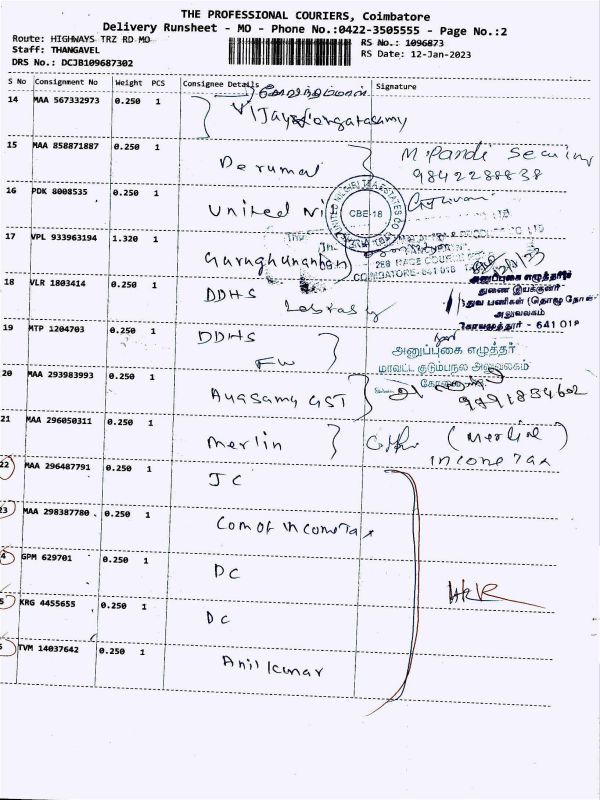 THE PROFESSIONAL COURIERS, Coimbatore
Delivery Runsheet - MO - Phone No.:0422-3505555 - Page No.:2
Route: HIGHWAYS TRZ RD MO
RS No.: 1096873
Staff: THANGAVEL
RS Date: 12-Jan-2023
DRS No.: DCJB109687302
S No Consignment No Weight PCS Consignee Details Signature
14 MAA 567332973 0.250 1
15 MAA 858871887 0.250 1 Perumal M.Pandi
9842288838
16 PDK 8008535 0.250 1 United Ni
UNITED NILGIRI TEA ESTATES CO
CBE-18
17 VPL 933963194 1.320 1
RACE COURSE
COIMBATORE-641 018
18 VLR 1803414 0.250 1 DDHS
அனுப்புகை எழுத்தர்
துணை இயக்குனர்
பணிகள் (தொழு நோய்
அலுவலகம்
கோயமுத்தூர் - 641 018
19 MTP 1204703 0.250 1 DDHS
FW
அனுப்புகை எழுத்தர்
மாவட்ட குடும்பநல அலுவலகம்
20 MAA 293983993 0.250 1 GST
21 MAA 296050311 0.250 1 Merlin (Merline)
Income Tax
22 MAA 296487791 0.250 1 JC
23 MAA 298387780 0.250 1 Com of Income Tax
4 GPM 629701 0.250 1 DC
5 KRG 4455655 0.250 1 DC
TVM 14037642 0.250 1 Anil kumar